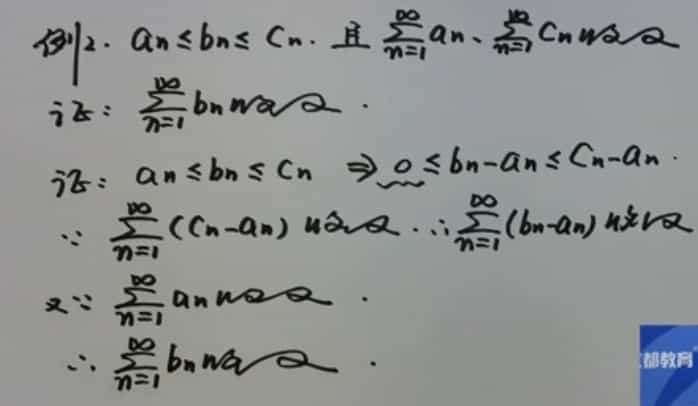 例2. aₙ ≤ bₙ ≤ Cₙ. 且 ∑_{n=1}^{∞} aₙ、∑_{n=1}^{∞} Cₙ 收敛
证: ∑_{n=1}^{∞} bₙ 收敛.
证: aₙ ≤ bₙ ≤ Cₙ ⇒ 0 ≤ bₙ-aₙ ≤ Cₙ-aₙ.
∵ ∑_{n=1}^{∞} (Cₙ-aₙ) 收敛. ∴ ∑_{n=1}^{∞} (bₙ-aₙ) 收敛
又∵ ∑_{n=1}^{∞} aₙ 收敛.
∴ ∑_{n=1}^{∞} bₙ 收敛.
都教育